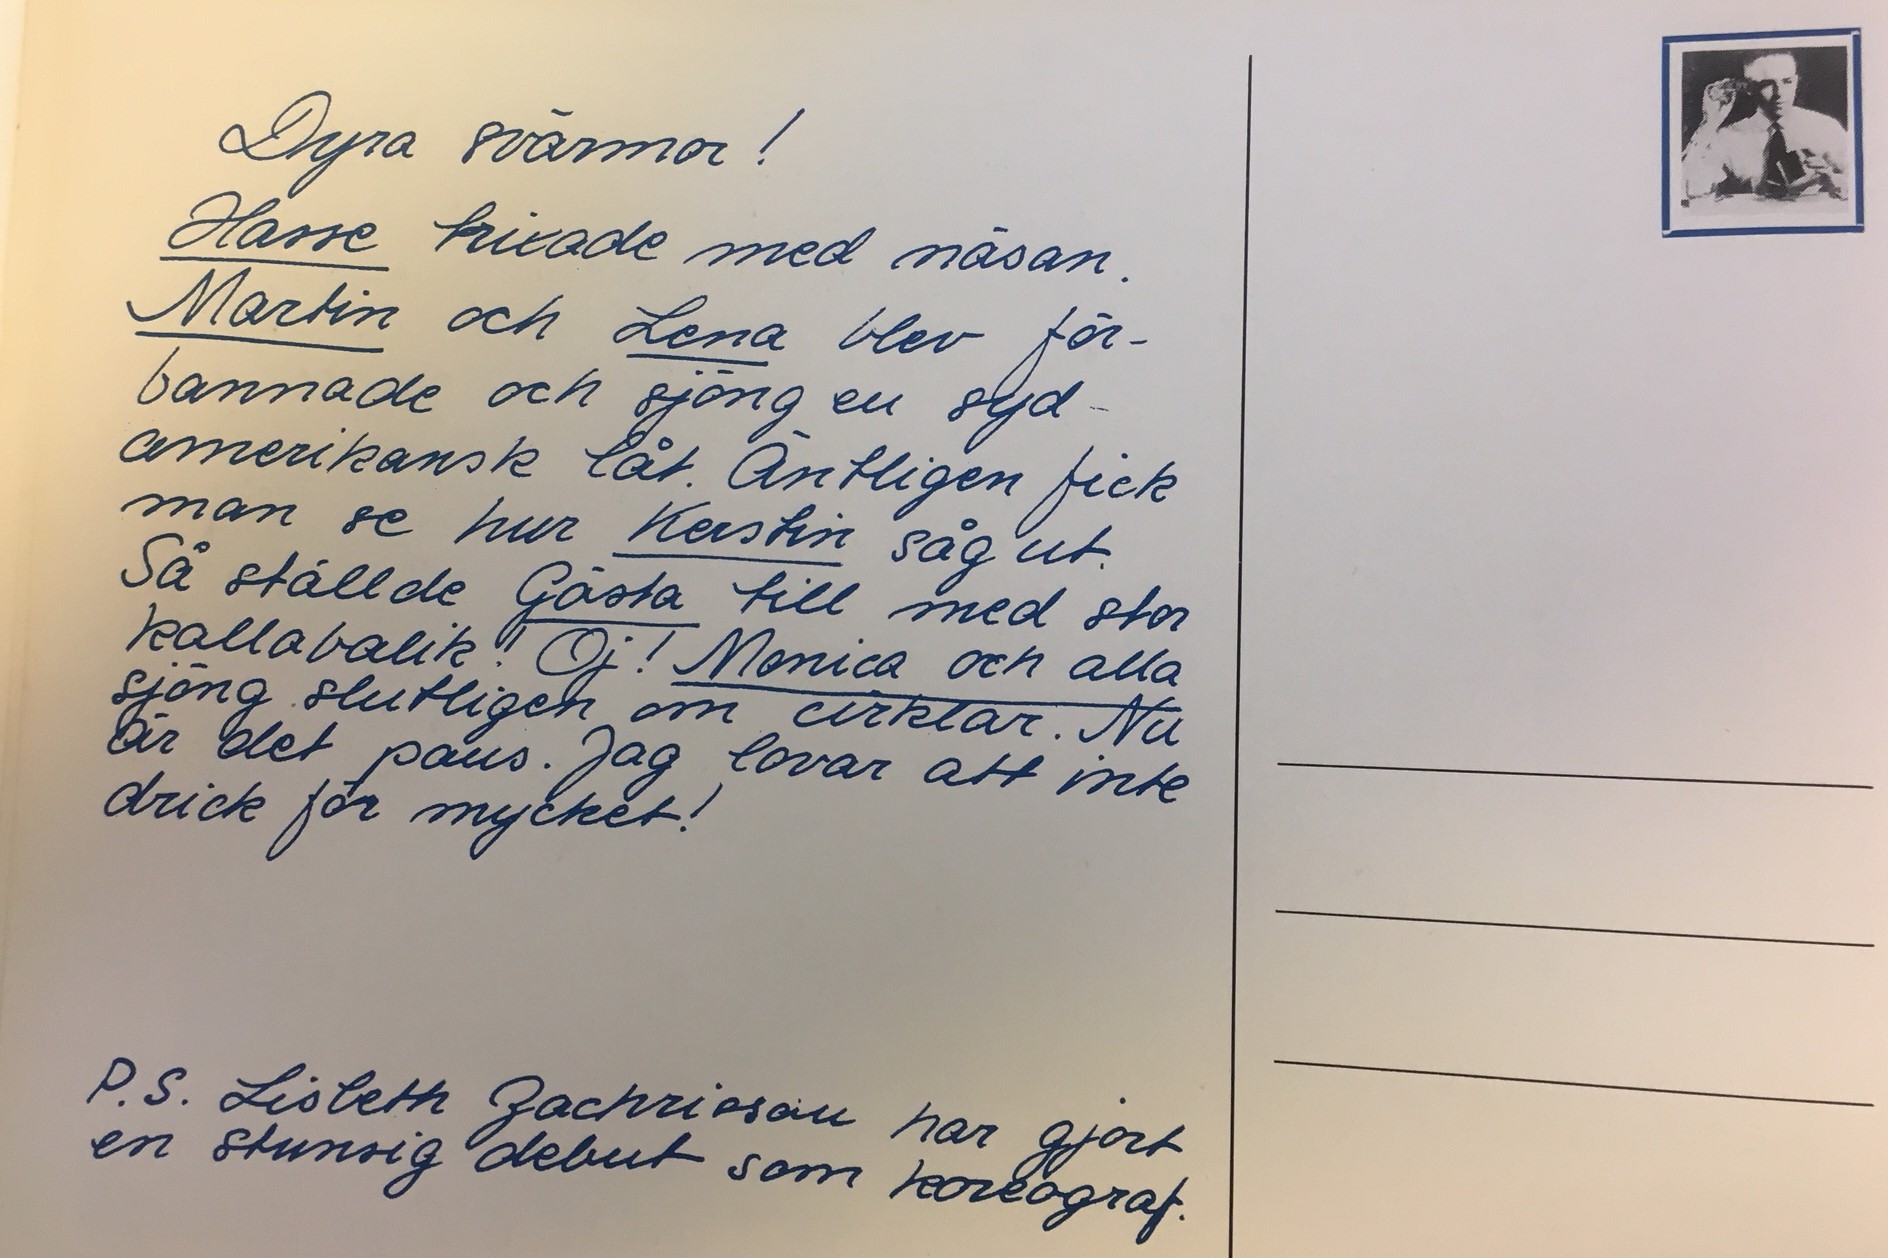 Dyra svärmor!
Hasse trixade med näsan.
Martin och Lena blev för-
bannade och sjöng en syd-
amerikansk låt. Äntligen fick
man se hur Kerstin såg ut.
Så ställde Gösta till med stor
kallabalik! Oj! Monica och alla
sjöng slutligen om cirklar. Nu
är det paus. Jag lovar att inte
drick för mycket!
P.S. Lisbeth Zachrisson har gjort
en stunsig debut som koreograf.